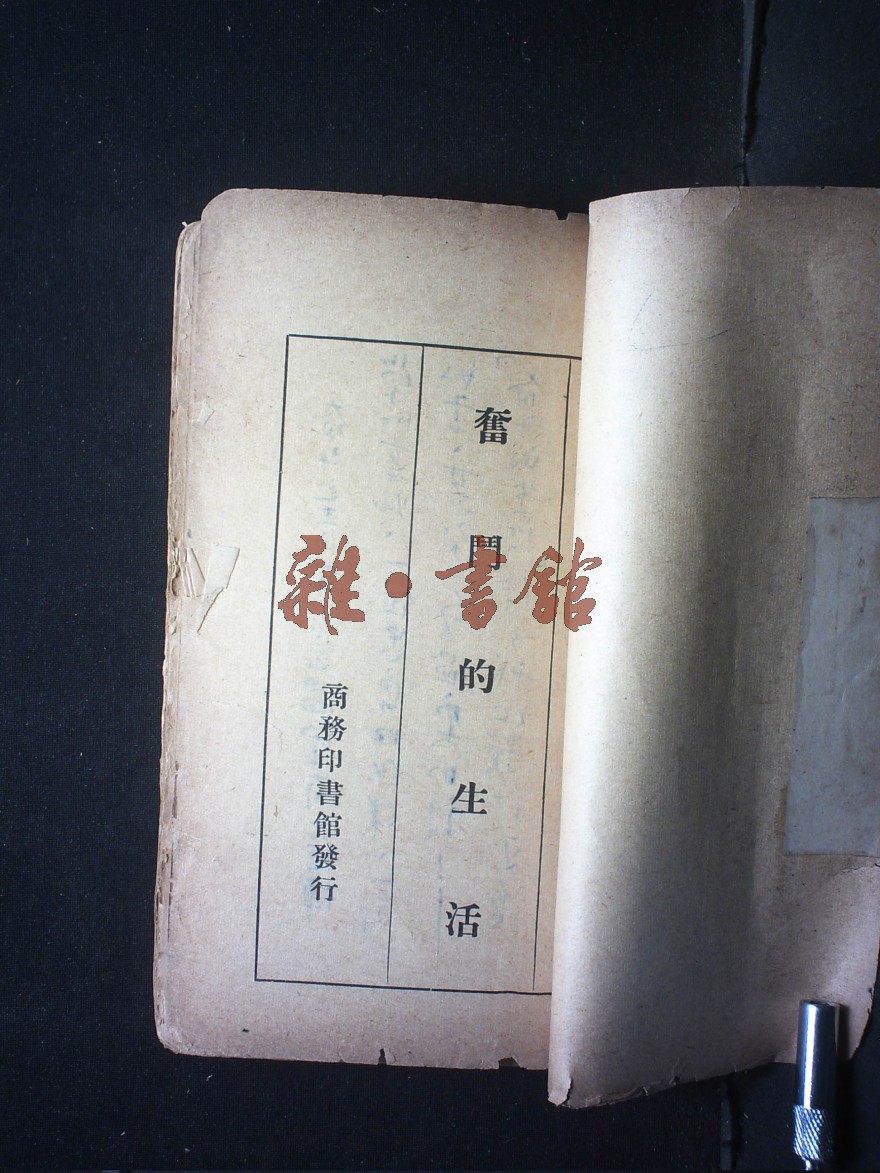 奮鬥的生活
商務印書館發行
雜·書館